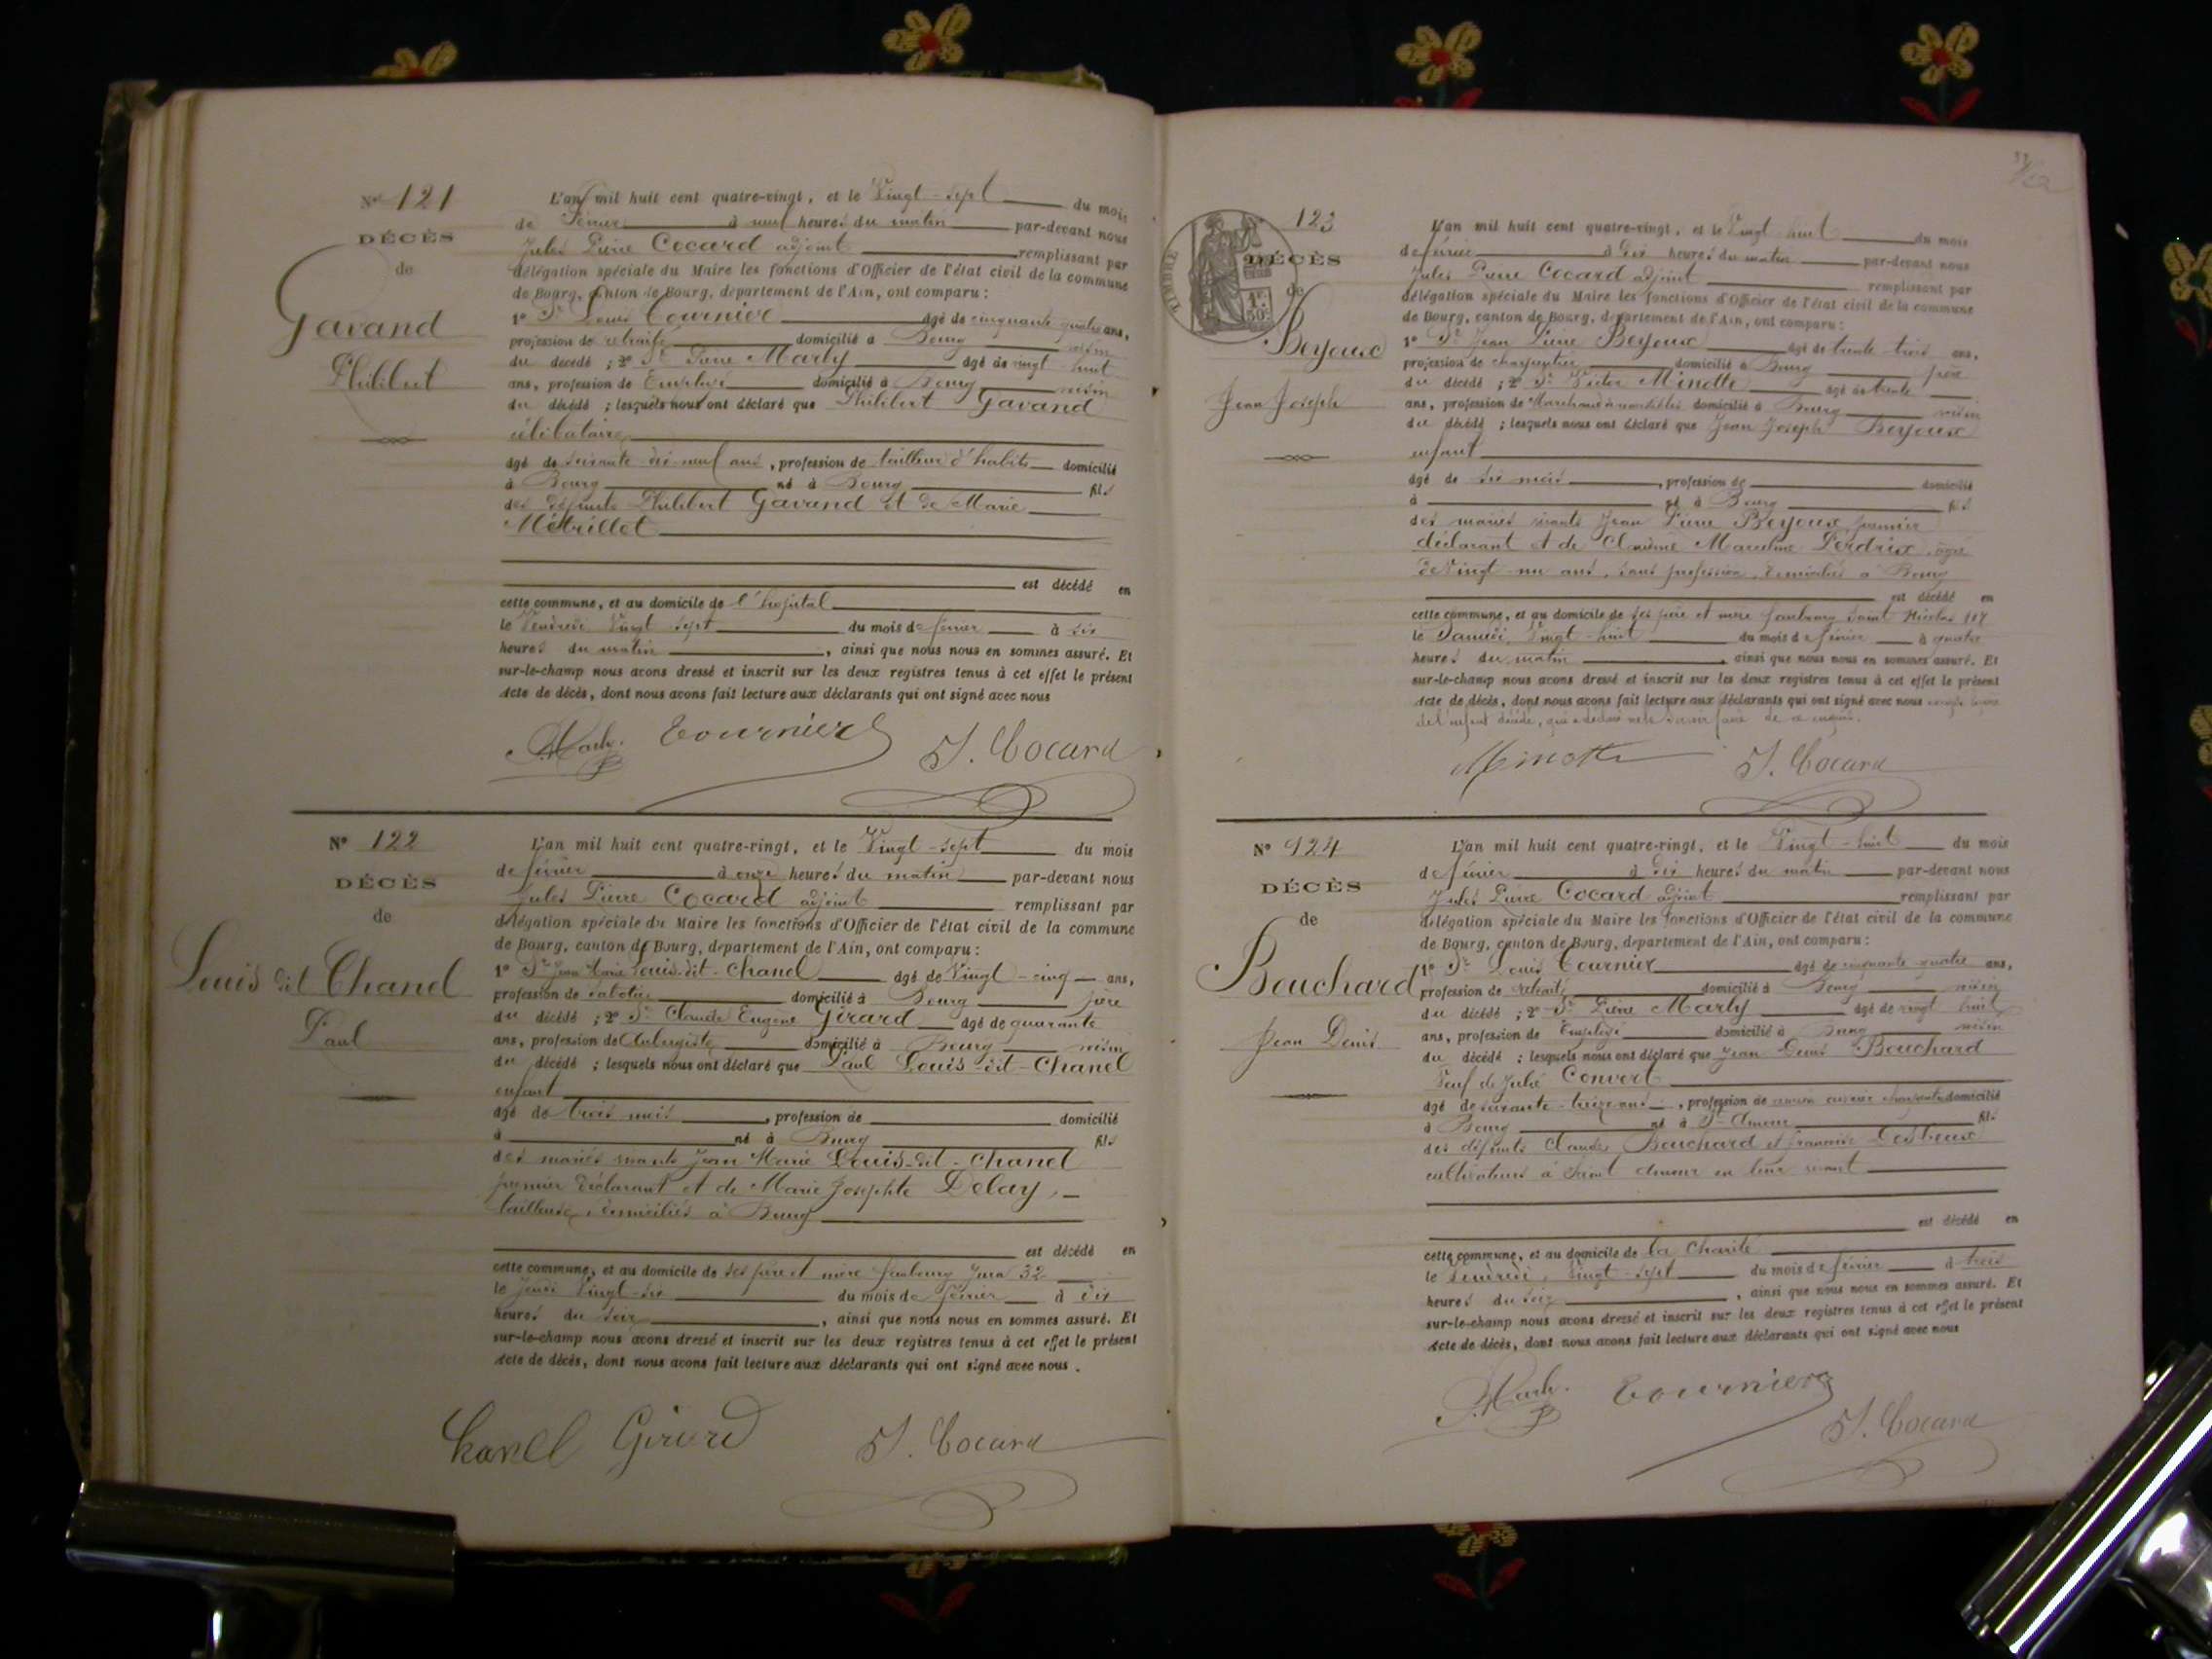 N° 121
DÉCÈS
de
Gavand
Philibert
L'an mil huit cent quatre-vingt, et le Vingt-sept du mois
de Février à neuf heures du matin par-devant nous
Jules Pierre Cocard adjoint remplissant par
délégation spéciale du Maire les fonctions d'Officier de l'état civil de la commune
de Bourg, canton de Bourg, département de l'Ain, ont comparu :
1° Sr Louis Tournier âgé de cinquante quatre ans,
profession de retraité domicilié à Bourg voisin
du décédé ; 2° Sr Pierre Marly âgé de vingt huit
ans, profession de Employé domicilié à Bourg voisin
du décédé ; lesquels nous ont déclaré que Philibert Gavand
célibataire
âgé de soixante dix neuf ans, profession de tailleur d'habits domicilié
à Bourg né à Bourg fils
des défunts Philibert Gavand et de Marie
Métrillot
est décédé en
cette commune, et au domicile de l'hôpital
le Vendredi Vingt sept du mois de février à six
heures du matin, ainsi que nous nous en sommes assuré. Et
sur-le-champ nous avons dressé et inscrit sur les deux registres tenus à cet effet le présent
acte de décès, dont nous avons fait lecture aux déclarants qui ont signé avec nous
Tournier J. Cocard
N° 122
DÉCÈS
de
Louis dit Chanel
Paul
L'an mil huit cent quatre-vingt, et le Vingt-sept du mois
de février à onze heures du matin par-devant nous
Jules Pierre Cocard adjoint remplissant par
délégation spéciale du Maire les fonctions d'Officier de l'état civil de la commune
de Bourg, canton de Bourg, département de l'Ain, ont comparu :
1° Sr Jean Marie Louis-dit-Chanel âgé de Vingt-cinq ans,
profession de sabotier domicilié à Bourg père
du décédé ; 2° Sr Claude Eugène Girard âgé de quarante
ans, profession de Aubergiste domicilié à Bourg voisin
du décédé ; lesquels nous ont déclaré que Paul Louis-dit-Chanel
enfant
âgé de trois mois, profession de domicilié
à né à Bourg fils
des mariés vivants Jean Marie Louis-dit-Chanel
premier déclarant et de Marie Josephte Delay,
tailleuse, domiciliés à Bourg
est décédé en
cette commune, et au domicile de ses père et mère faubourg Jura 32
le Jeudi Vingt-six du mois de février à dix
heures du soir, ainsi que nous nous en sommes assuré. Et
sur-le-champ nous avons dressé et inscrit sur les deux registres tenus à cet effet le présent
acte de décès, dont nous avons fait lecture aux déclarants qui ont signé avec nous.
Chanel Girard J. Cocard
TIMBRE
123
DÉCÈS
de
Beyoux
Jean Joseph
L'an mil huit cent quatre-vingt, et le Vingt-huit du mois
de février à dix heures du matin par-devant nous
Jules Pierre Cocard adjoint remplissant par
délégation spéciale du Maire les fonctions d'Officier de l'état civil de la commune
de Bourg, canton de Bourg, département de l'Ain, ont comparu :
1° Sr Jean Pierre Beyoux âgé de trente trois ans,
profession de charpentier domicilié à Bourg père
du décédé ; 2° Sr Victor Minotte âgé de trente
ans, profession de Marchand domicilié à Bourg voisin
du décédé ; lesquels nous ont déclaré que Jean Joseph Beyoux
enfant
âgé de six mois, profession de domicilié
à né à Bourg fils
des mariés vivants Jean Pierre Beyoux premier
déclarant et de Marceline Perdrix, âgée
de Vingt un ans, sans profession, domiciliés à Bourg
est décédé en
cette commune, et au domicile de ses père et mère faubourg Saint Nicolas
le Samedi Vingt-huit du mois de février à quatre
heures du matin, ainsi que nous nous en sommes assuré. Et
sur-le-champ nous avons dressé et inscrit sur les deux registres tenus à cet effet le présent
acte de décès, dont nous avons fait lecture aux déclarants qui ont signé avec nous excepté le père
de l'enfant décédé, qui a déclaré ne le savoir faire de ce enquis.
Minotte J. Cocard
N° 124
DÉCÈS
de
Bouchard
Jean Denis
L'an mil huit cent quatre-vingt, et le Vingt-huit du mois
de février à dix heures du matin par-devant nous
Jules Pierre Cocard adjoint remplissant par
délégation spéciale du Maire les fonctions d'Officier de l'état civil de la commune
de Bourg, canton de Bourg, département de l'Ain, ont comparu :
1° Sr Louis Tournier âgé de cinquante quatre ans,
profession de retraité domicilié à Bourg voisin
du décédé ; 2° Sr Pierre Marly âgé de vingt huit
ans, profession de Employé domicilié à Bourg voisin
du décédé ; lesquels nous ont déclaré que Jean Denis Bouchard
Veuf de Julie Convert
âgé de soixante-treize ans, profession de ancien charpentier domicilié
à Bourg né à St Amour fils
des défunts Claude Bouchard et Francoise
cultivateurs à Saint Amour en leur vivant
est décédé en
cette commune, et au domicile de la Charité
le Vendredi, Vingt-sept du mois de février à trois
heures du soir, ainsi que nous nous en sommes assuré. Et
sur-le-champ nous avons dressé et inscrit sur les deux registres tenus à cet effet le présent
acte de décès, dont nous avons fait lecture aux déclarants qui ont signé avec nous
Tournier
J. Cocard